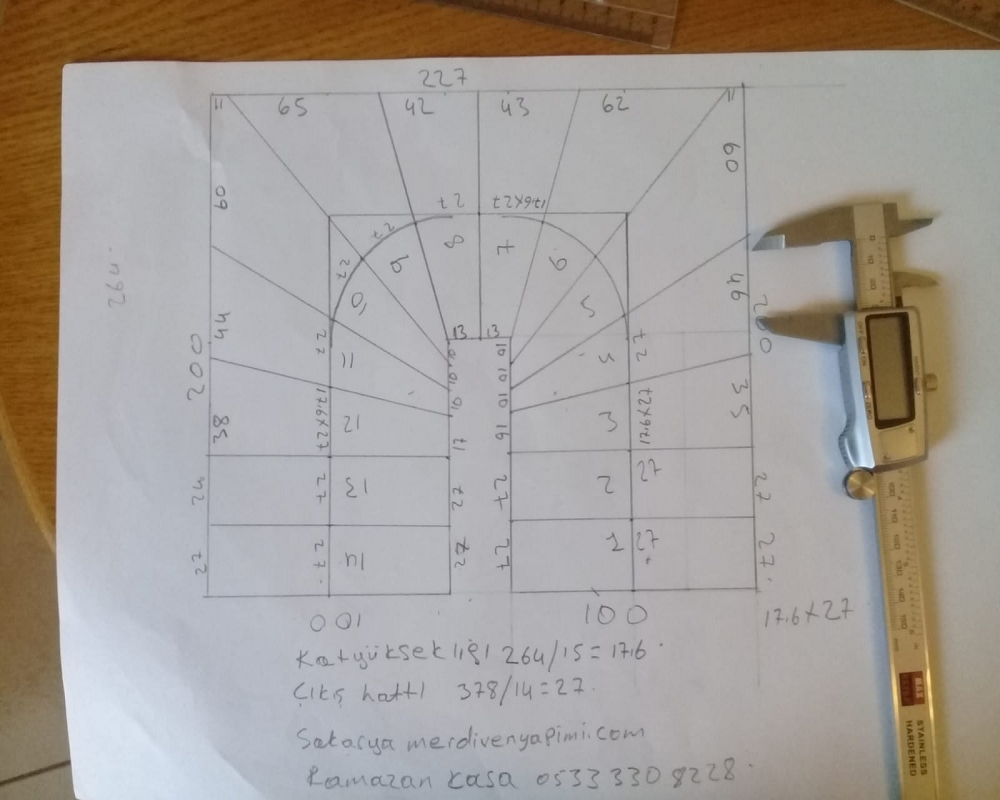 227
11 65 42 43 62 11
60 60
27 17.6x27
27 8 7
27 9 6
264
27 10 5 46
44 27 13 13 27 200
200 11 10 10
10 10
10 10 3
17.6x27 12 3 17.6x27 35
38 17 16
24 27 13 27 27 2 27 27
27 27 14 27 27 1 27 27
100 100 17.6x27
Kat yüksekliği 264/15=17.6
Çıkış hattı 378/14=27
Sakarya merdivenyapimi.com
Ramazan Kasa 0533 330 8228
STAINLESS
HARDENED